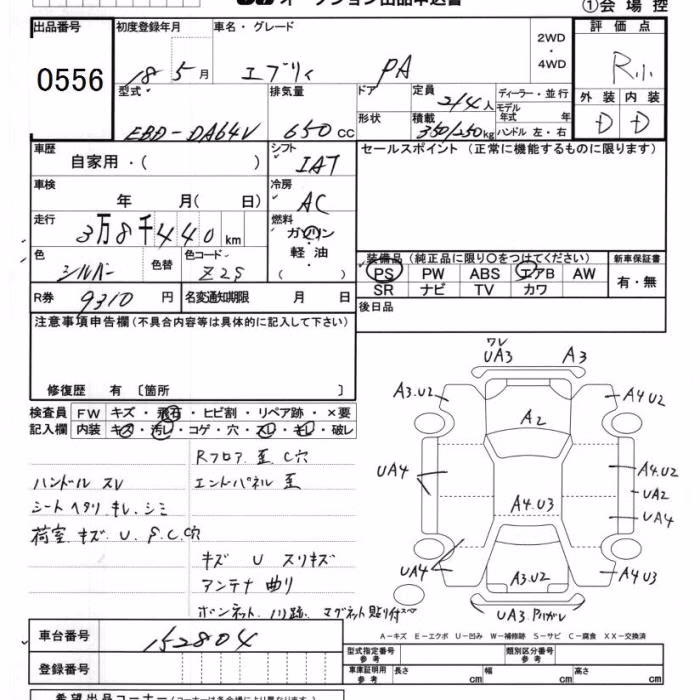 オークション出品申込書
①会場控
出品番号 0556
初度登録年月 18 5月
車名・グレード エブリィ PA
2WD・4WD
評価点 R小
型式 EBD-DA64V
排気量 650cc
ドア
形状
定員 2/4人
積載 350/250kg
ディーラー・並行
モデル年式 年
ハンドル 左・右
外装 D
内装 D
車歴 自家用・( )
シフト IAT
セールスポイント(正常に機能するものに限ります)
車検 年 月( 日)
冷房 AC
走行 3万8千440km
燃料 ガソリン・軽油 ( )
色 シルバー
色替
色コード Z2S
装備品(純正品に限り○をつけてください)
新車保証書
PS PW ABS エアB AW
有・無
SR ナビ TV カワ
R券 9310円
名変通知期限 月 日
後日品
注意事項申告欄(不具合内容等は具体的に記入して下さい)
修復歴 有〔箇所 〕
検査員記入欄
FW キズ・飛石・ヒビ割・リペア跡・×要
内装 キズ・汚レ・コゲ・穴・スレ・キレ・破レ
Rフロア 歪 C穴
ハンドル スレ
エンドパネル 歪
シート ヘタリ キレ.シミ
荷室 キズ U S.C.穴
キズ U スリキズ
アンテナ 曲リ
ボンネット マグネット貼り付
ワレ
UA3 A3
A3.U2 A4U2
A2
UA4 A4.U2
UA2
A4.U3 UA4
UA4 A3.U2 A4U3
UA3
A-キズ E-エクボ U-凹み W-補修跡 S-サビ C-腐食 XX-交換済
車台番号 152804
登録番号
型式指定番号 参考
類別区分番号 参考
車庫証明用 参考
長さ cm 幅 cm 高さ cm
希望出品コーナー(コーナーは各会場により異なります)